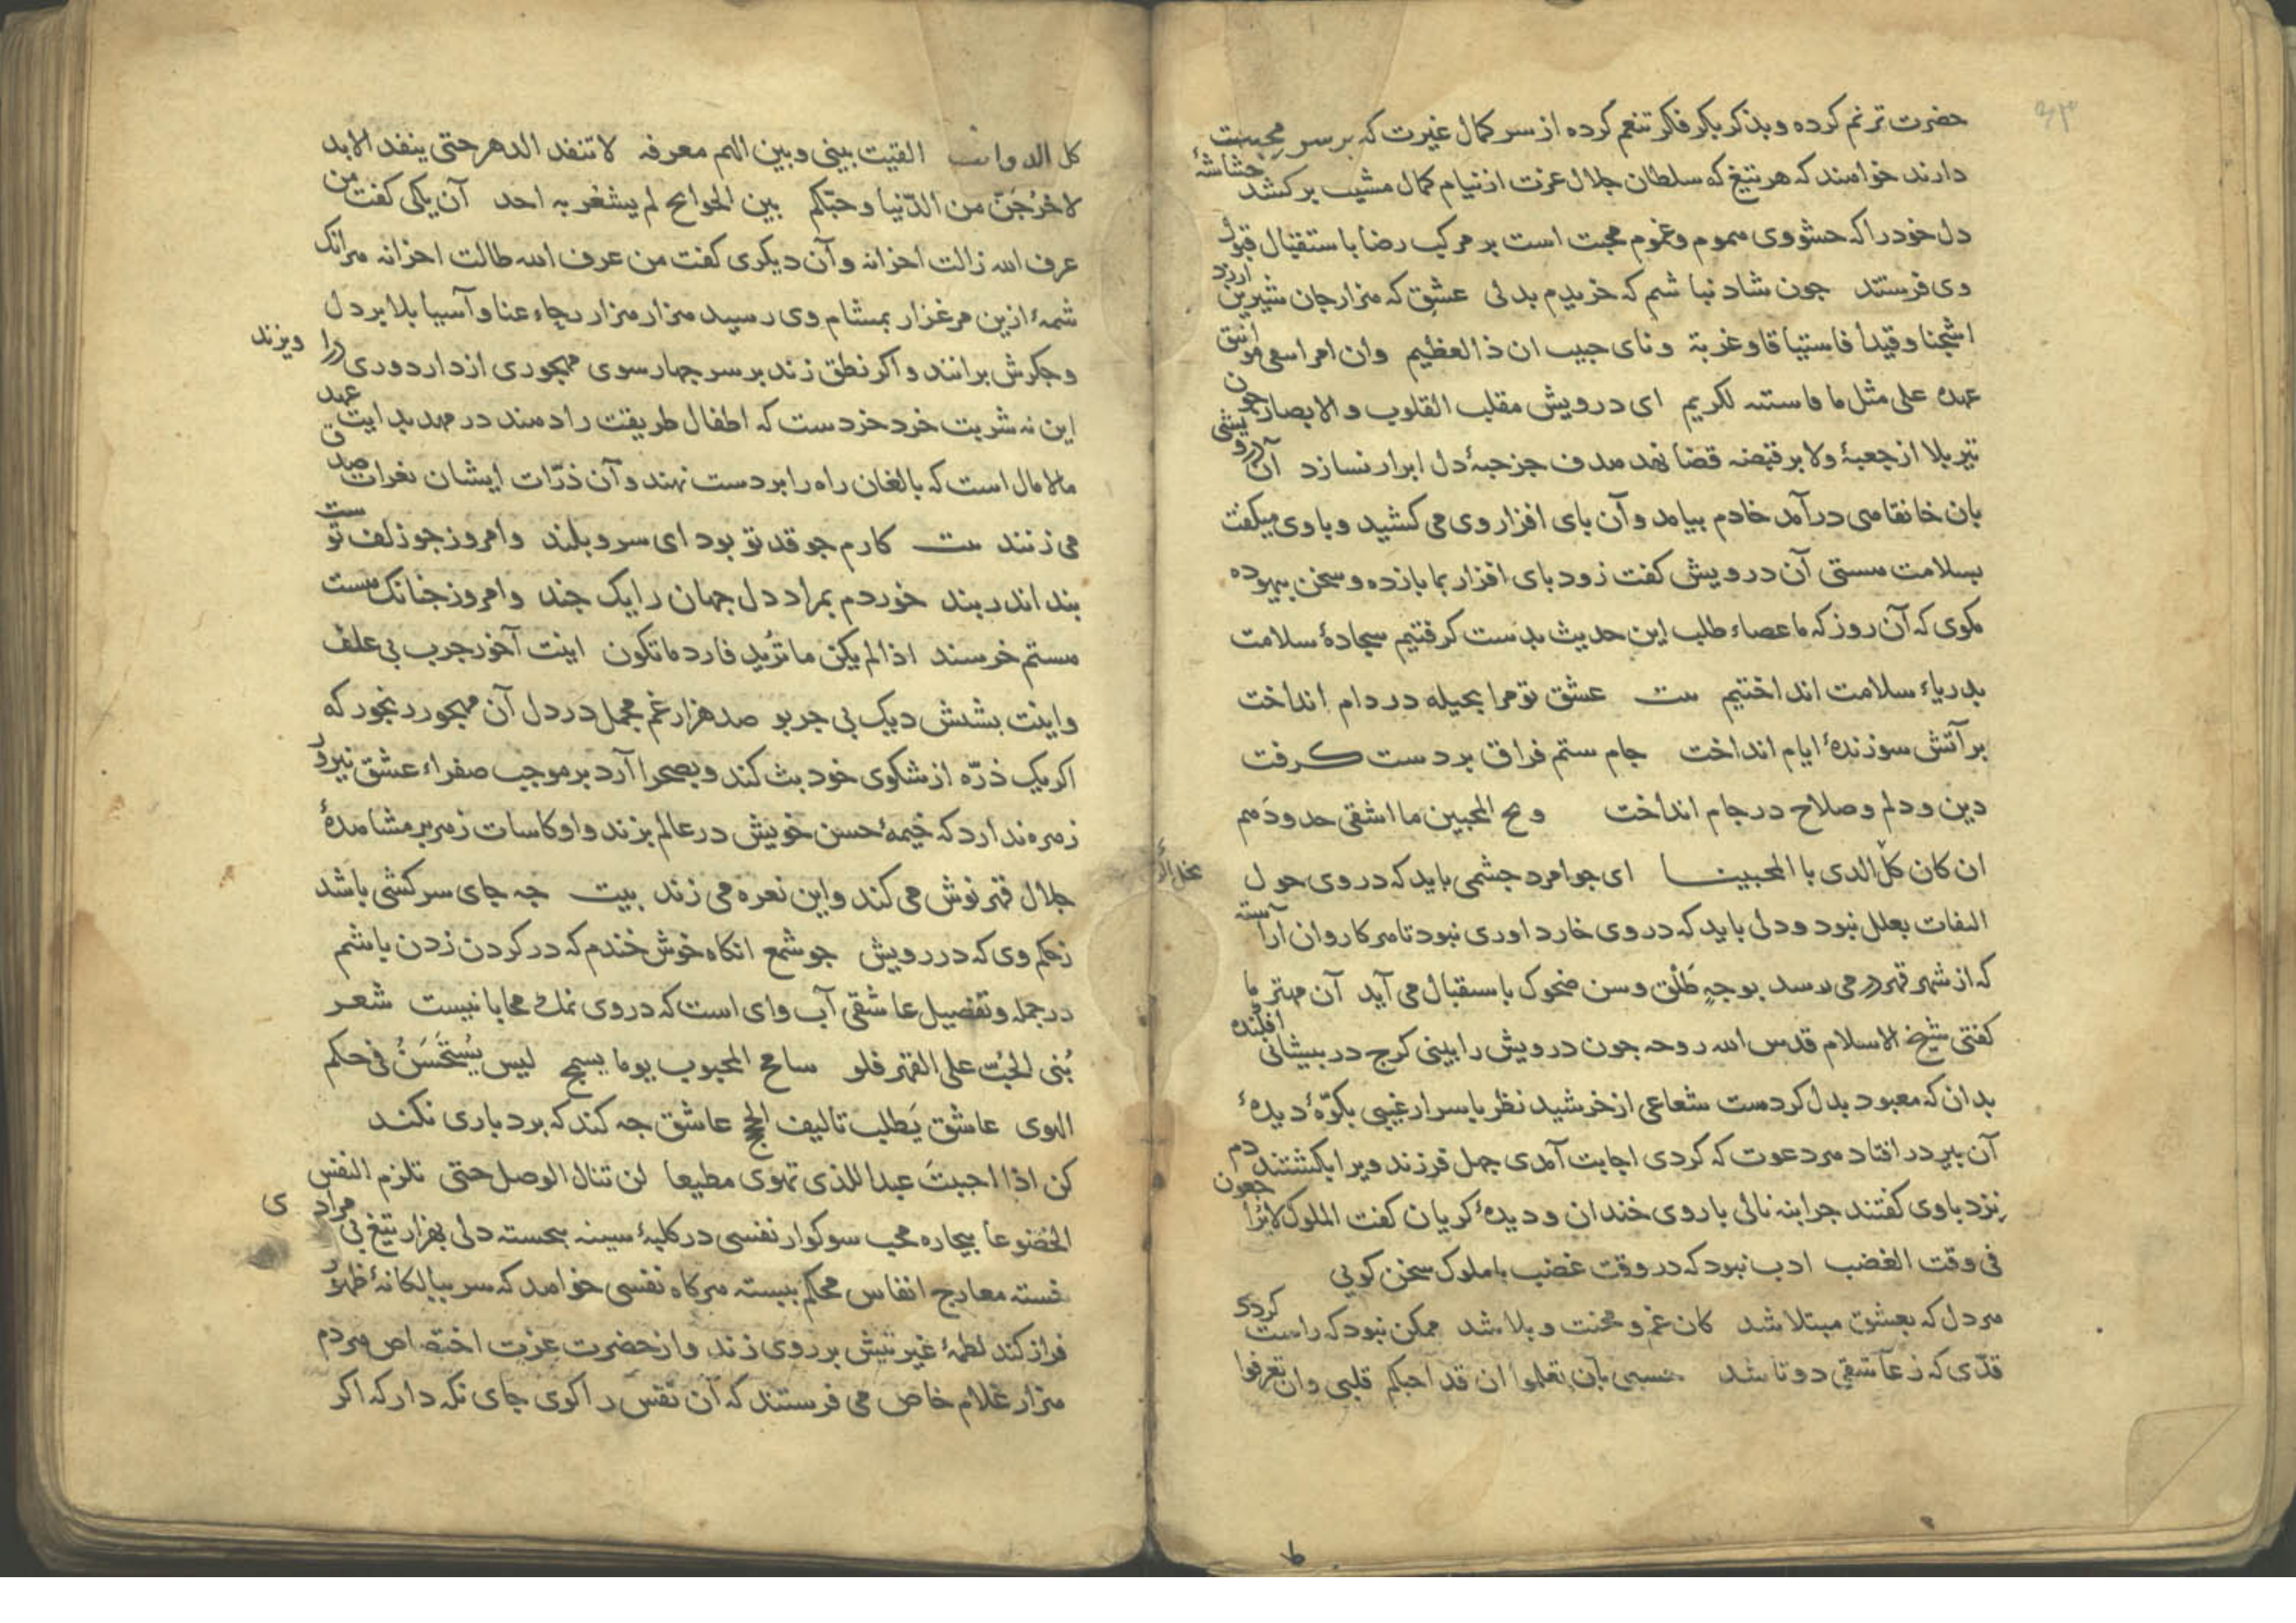 حضرت ترنم کرده و بذکر بکر فکر تنعم کرده از سر کمال غیرت که بر سر محبت
دارند خواهند که هر تیغ که سلطان جلال عزت از نیام کمال مشیب برکشد حشاشهٔ
دل خود را که حشو وی هموم و غموم محبت است بر مرکب رضا باستقبال قبول
وی فرستند جون شاد نباشم که خریدم بدلی عشقی که هزار جان شیرین ارزد
اشجنا وقیدا فاستیاقا وغربة ونای حبیب ان ذا لعظیم وان امراسعی موثق
عهده علی مثل ما قاسیته لکریم ای درویش مقلب القلوب و الابصار جون
تیر بلا از جعبهٔ ولا بر قبضه قضا نهد هدف جز حبهٔ دل ابرار نسازد آن درویشی
بان خانقاهی درآمد خادم بیامد و آن بای افزار وی می کشید و با وی میکفت
بسلامت هستی آن درویش کفت زود بای افزار بما بازده و سخن بیهوده
مکوی که آن روز که ما عصاء طلب این حدیث بدست کرفتیم سجادهٔ سلامت
بدریاء سلامت انداختیم بیت عشق تو مرا بحیله در دام انداخت
بر آتش سوزندهٔ ایام انداخت جام ستم فراق بر دست کرفت
دین و دلم و صلاح در جام انداخت ویح المحبین ما اشقی حدودهم
ان کان کل الذی با المحبینا ای جوامرد جشمی باید که در وی حول
التفات بعلل نبود و دلی باید که در وی خار داوری نبود تا هر کاروان آراسته
که از شهر قهر در می رسد بوجهٍ طَلْق و سن ضحوک باستقبال می آید آن مهتر ما
کفتی شیخ الاسلام قدس الله روحه جون درویش را بینی کرج در بیشانی افکنده
بدان که معبود بدل کردست شعاعی از خرشید نظر با سرار غیبی بکوّهٔ دیدهٔ
آن بیر در افتاد هر دعوت که کردی اجابت آمدی جهل فرزند ویرا بکشتند دم
نزد باوی کفتند جرا بنه نالی با روی خندان و دیدهٔ کریان کفت الملوک لا یراجعون
فی وقت الغضب ادب نبود که در وقت غضب با ملوک سخن کویی
هر دل که بعشق مبتلا شد کان غم و محنت و بلا شد ممکن نبود که راست کردد
قدّی که ز عاشقی دوتا شد حسبی بان تعلموا ان قد احبکم قلبی وان تعرفوا
کل الد وا القیت بینی و بین الهم معرفه لا تنفد الدهر حتی ینفد الابد
لاخرُجَنّ من الدّنیا وحبّکم بین الجوانح لم یشعر به احد آن یکی کفت من
عرف الله زالت احزانه و آن دیکری کفت من عرف الله طالت احزانه هر انک
شمهٔ ازین مرغزار بمشام وی رسید هزار هزار رجاء عنا و آسیا بلا بر دل
و جکرش برانند و اکر نطق زند بر سر جهار سوی مهجوری از دار دوری درا ویزند
این نه شربت خرد خردست که اطفال طریقت را دهند در مهد بدایت عهد
مالامال است که بالغان راه را بر دست نهند و آن ذرّات ایشان نعرات صدق
می زنند بیت کارم جو قد تو بود ای سرو بلند و امروز جو زلف تو ست
بند اندر بند خوردم بمراد دل جهان را یک جند و امروز جنانک هست
هستم خرسند اذا لم یکن ما تُرید فارد ما تکون اینت آخور جرب بی علف
و اینت بشدش دیک بی جربو صد هزار غم مجمل در دل آن مهجور رنجور که
اکر یک ذرّه از شکوی خود بث کند و بصحرا آرد بر موجب صفراء عشق نیرو
زهره ندارد که خیمهٔ حسن خویش در عالم بزند و او کاسات زهر بر مشاهدهٔ
جلال قهر نوش می کند و این نعره می زند بیت جه جای سرکشی باشد
زحکم وی که در رویش جو شمع انکاه خوش خندم که در کردن زدن باشم
در جمله و تفصیل عاشقی آب وای است که در وی نمک محابا نیست شعر
بُنی الحُبّ علی القهر فلو سامح المحبوب یوما یسمج لیس یُستَحسَنُ فی حکم
الهوی عاشق یَطلب تالیف الحجج عاشق جه کند که بردباری نکند
کن اذا احببتَ عبدا للذی تهوی مطیعا لن تنال الوصل حتی تلزم النفس
الخضوعا بیجاره محب سوکوار نفسی در کلبهٔ سینه بجسته دلی بهزار تیغ بی مرادی
خسته معارج انفاس محکم ببسته هرکاه نفسی خواهد که سر ببالکانهٔ ظهور
فراز کند لطمهٔ غیرتیش بر روی زند و از حضرت عزت اختصاص هر دم
هزار غلام خاص می فرستند که آن نفس را کوی جای نکه دار که اکر